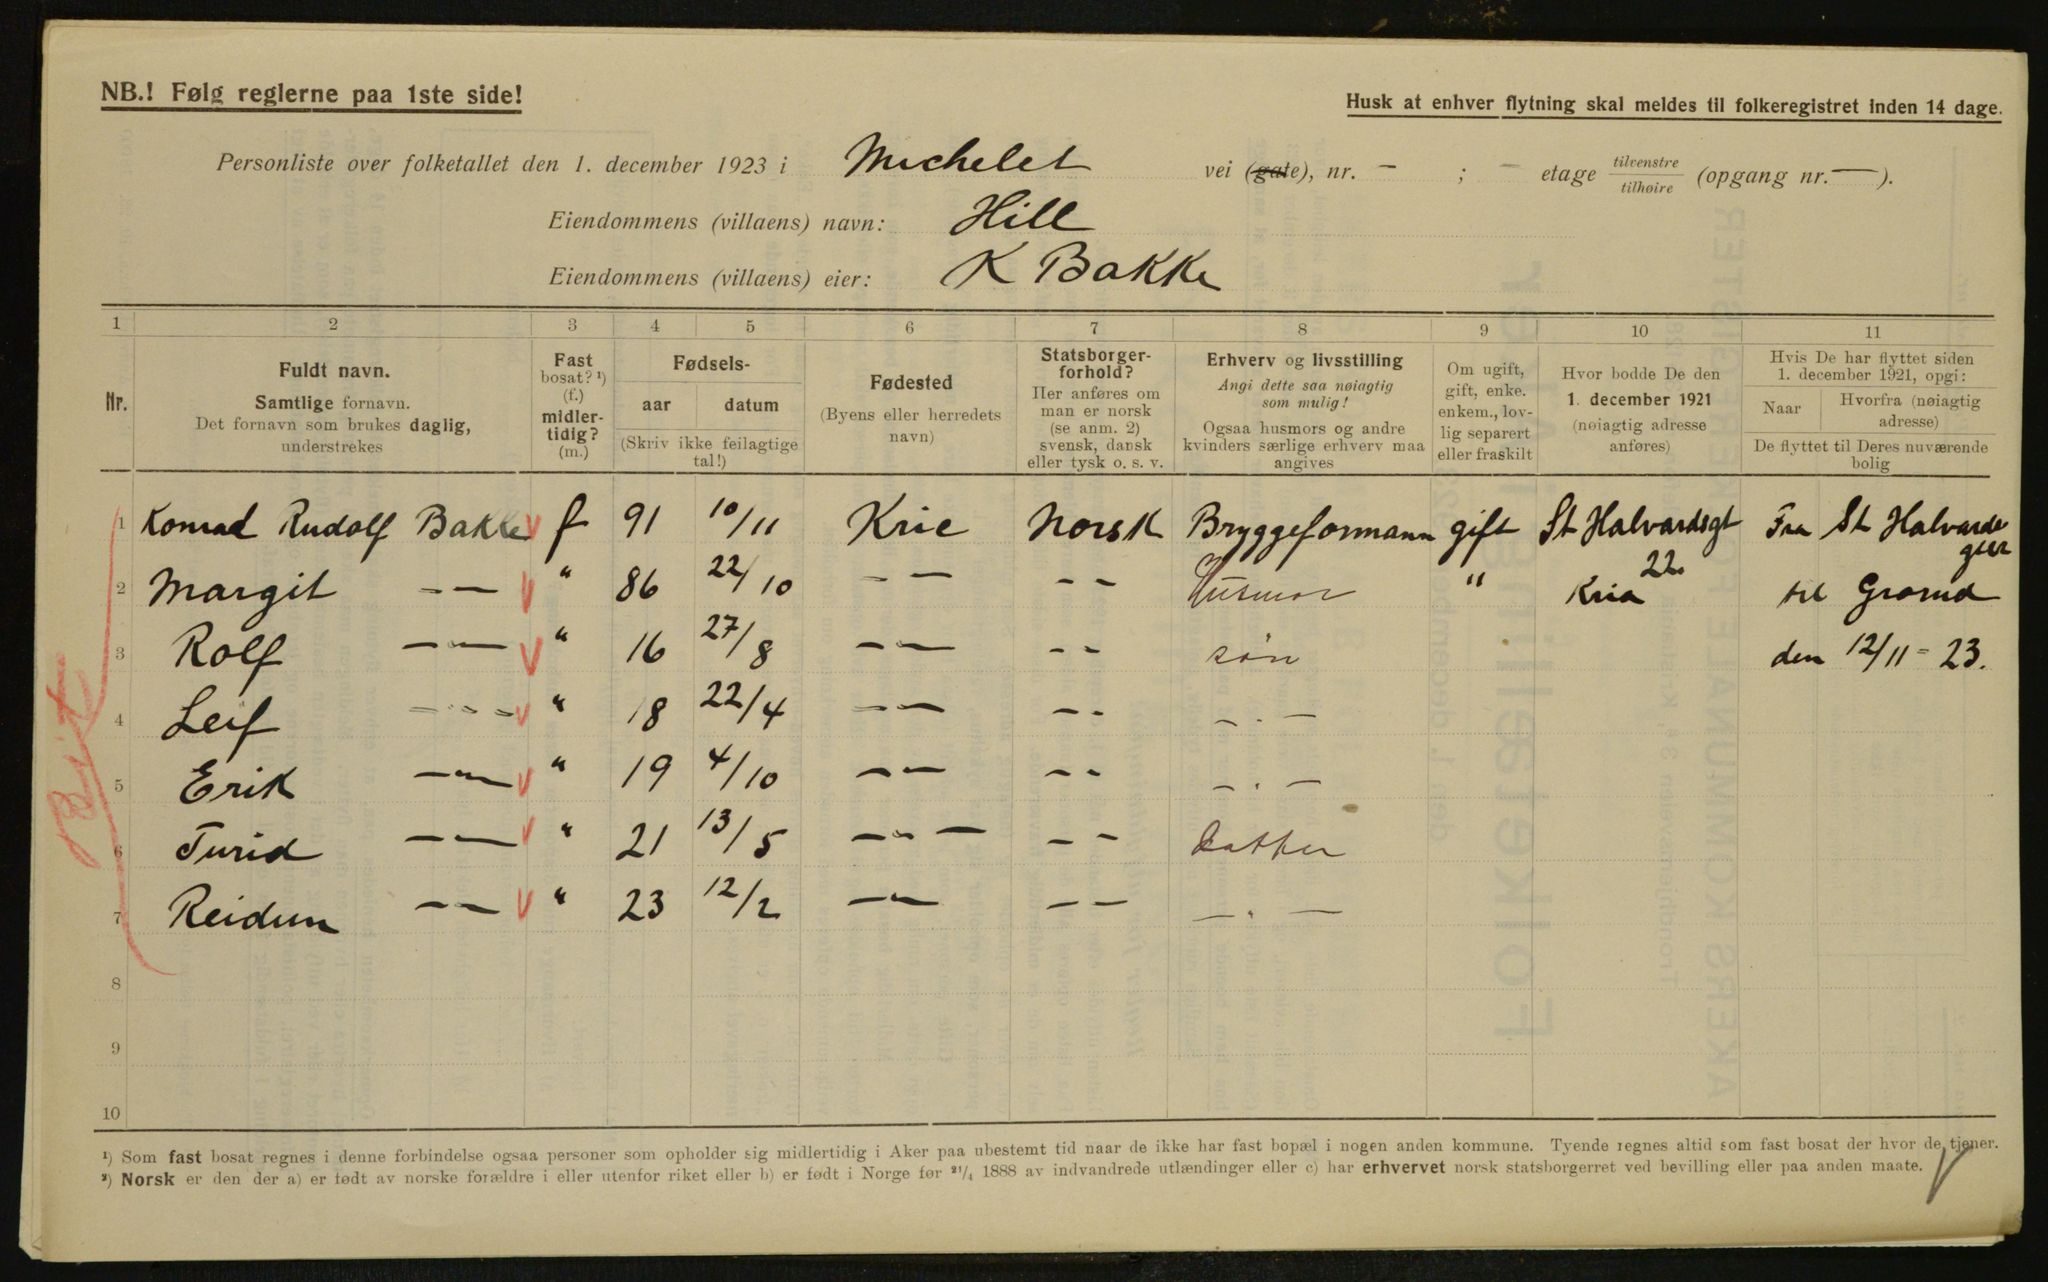 NB.! Følg reglerne paa 1ste side!
Husk at enhver flytning skal meldes til folkeregistret inden 14 dage.
Personliste over folketallet den 1. december 1923 i Michelet vei (gate), nr. — ; — etage tilvenstre / tilhøire (opgang nr. —).
Eiendommens (villaens) navn: Hill
Eiendommens (villaens) eier: K Bakke
1 2 3 4 5 6 7 8 9 10 11
Nr.
Fuldt navn.
Samtlige fornavn.
Det fornavn som brukes daglig,
understrekes
Fast
bosat? ¹)
(f.)
midler-
tidig?
(m.)
Fødsels-
aar datum
(Skriv ikke feilagtige
tal!)
Fødested
(Byens eller herredets
navn)
Statsborger-
forhold?
Her anføres om
man er norsk
(se anm. 2)
svensk, dansk
eller tysk o. s. v.
Erhverv og livsstilling
Angi dette saa nøiagtig
som mulig!
Ogsaa husmors og andre
kvinders særlige erhverv maa
angives
Om ugift,
gift, enke.
enkem., lov-
lig separert
eller fraskilt
Hvor bodde De den
1. december 1921
(nøiagtig adresse
anføres)
Hvis De har flyttet siden
1. december 1921, opgi:
Naar Hvorfra (nøiagtig
adresse)
De flyttet til Deres nuværende
bolig
1 Konrad Rudolf Bakke f 91 10/11 Krie Norsk Bryggeformann gift St Halvardsgt 22 Fra St Halvards
2 Margit —"— " 86 22/10 — — - - Husmor " Kria til Grorud
3 Rolf —"— " 16 27/8 —"— - - søn den 12/11 = 23.
4 Leif - - - - " 18 22/4 —"— - - — . —
5 Erik —"— " 19 4/10 —"— - - — . —
6 Turid —"— " 21 13/5 —"— — - - Datter
7 Reidun —"— " 23 12/2 —"— — — — . —
8
9
10
¹) Som fast bosat regnes i denne forbindelse ogsaa personer som opholder sig midlertidig i Aker paa ubestemt tid naar de ikke har fast bopæl i nogen anden kommune. Tyende regnes altid som fast bosat der hvor de tjener.
²) Norsk er den der a) er født av norske forældre i eller utenfor riket eller b) er født i Norge før 21/4 1888 av indvandrede utlændinger eller c) har erhvervet norsk statsborgerret ved bevilling eller paa anden maate.